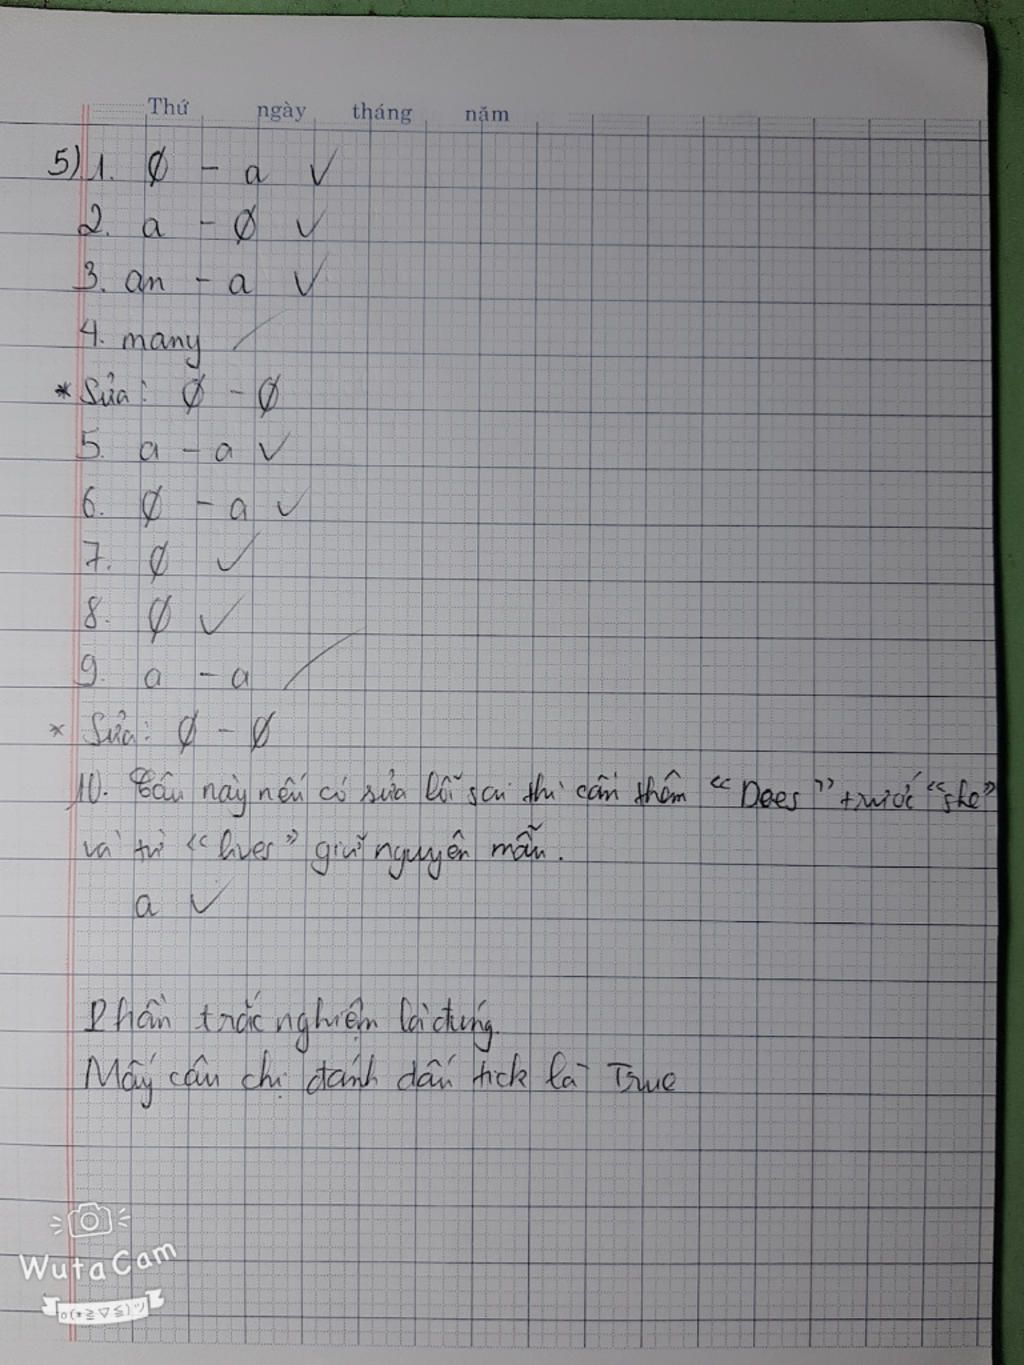 Thứ ngày tháng năm
5) 1. Ø - a ✓
2. a - Ø ✓
3. an - a ✓
4. many /
* Sửa: Ø - Ø
5. a - a ✓
6. Ø - a ✓
7. Ø ✓
8. Ø ✓
9. a - a /
* Sửa: Ø - Ø
10. Câu này nếu có sửa lỗi sai thì cần thêm “Does” trước “she”
và từ “lives” giữ nguyên mẫu.
a ✓
Phần trắc nghiệm là đúng.
Mấy câu chị đánh dấu tick là True
WutaCam
o(*≧▽≦)ツ